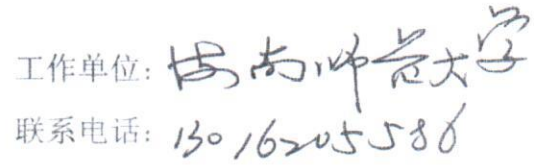 工作单位: 海南师范大学
联系电话: 13016205586